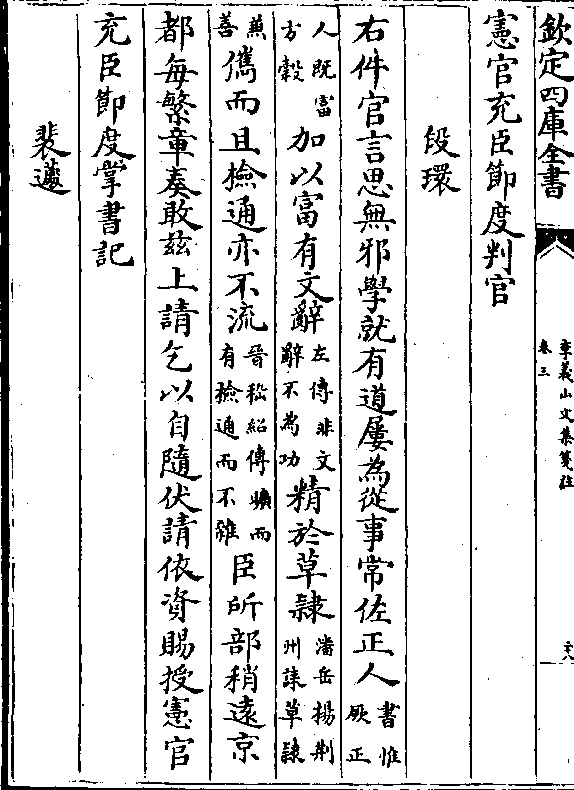 欽定四庫全書
李義山文集箋註
卷三
憲官充臣節度判官
段環
右件官言思無邪學就有道屢為從事常佐正人書惟厥正
人既富方穀加以富有文辭左傳非文辭不為功精於草隸潘岳楊荆州誄草隸
兼善儁而且檢通亦不流晉嵇紹傳曠而有檢通而不雜臣所部稍遠京
都每繁章奏敢兹上請乞以自隨伏請依資賜授憲官
充臣節度掌書記
裴蘧